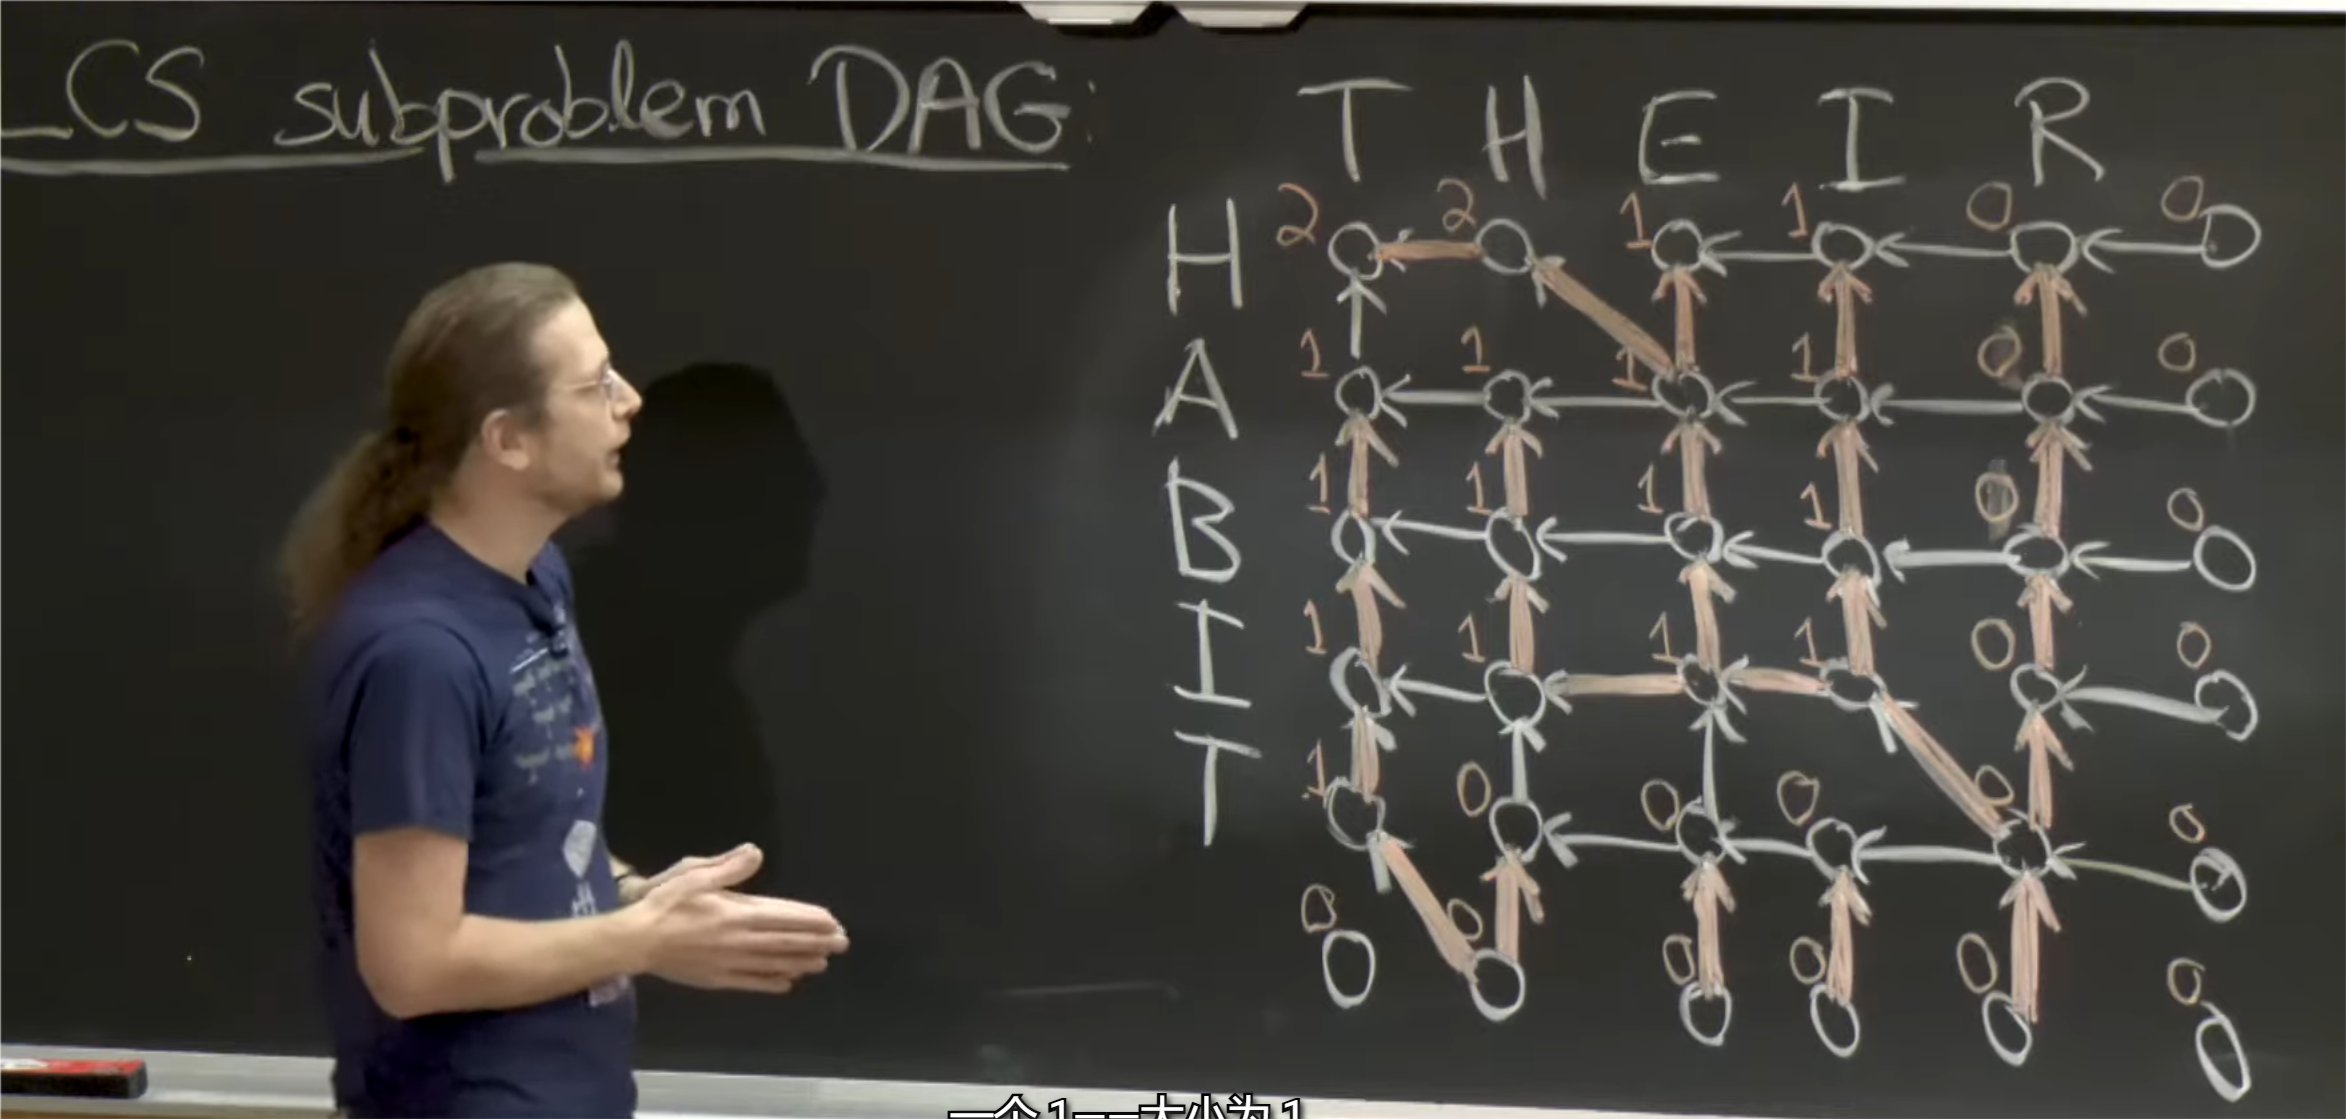 LCS subproblem DAG:
T H E I R
H 2 2 1 1 0 0
A 1 1 1 1 0 0
B 1 1 1 1 0 0
I 1 1 1 1 0 0
T 1 0 0 0 0 0
0 0 0 0 0 0
一个 1——大小为 1